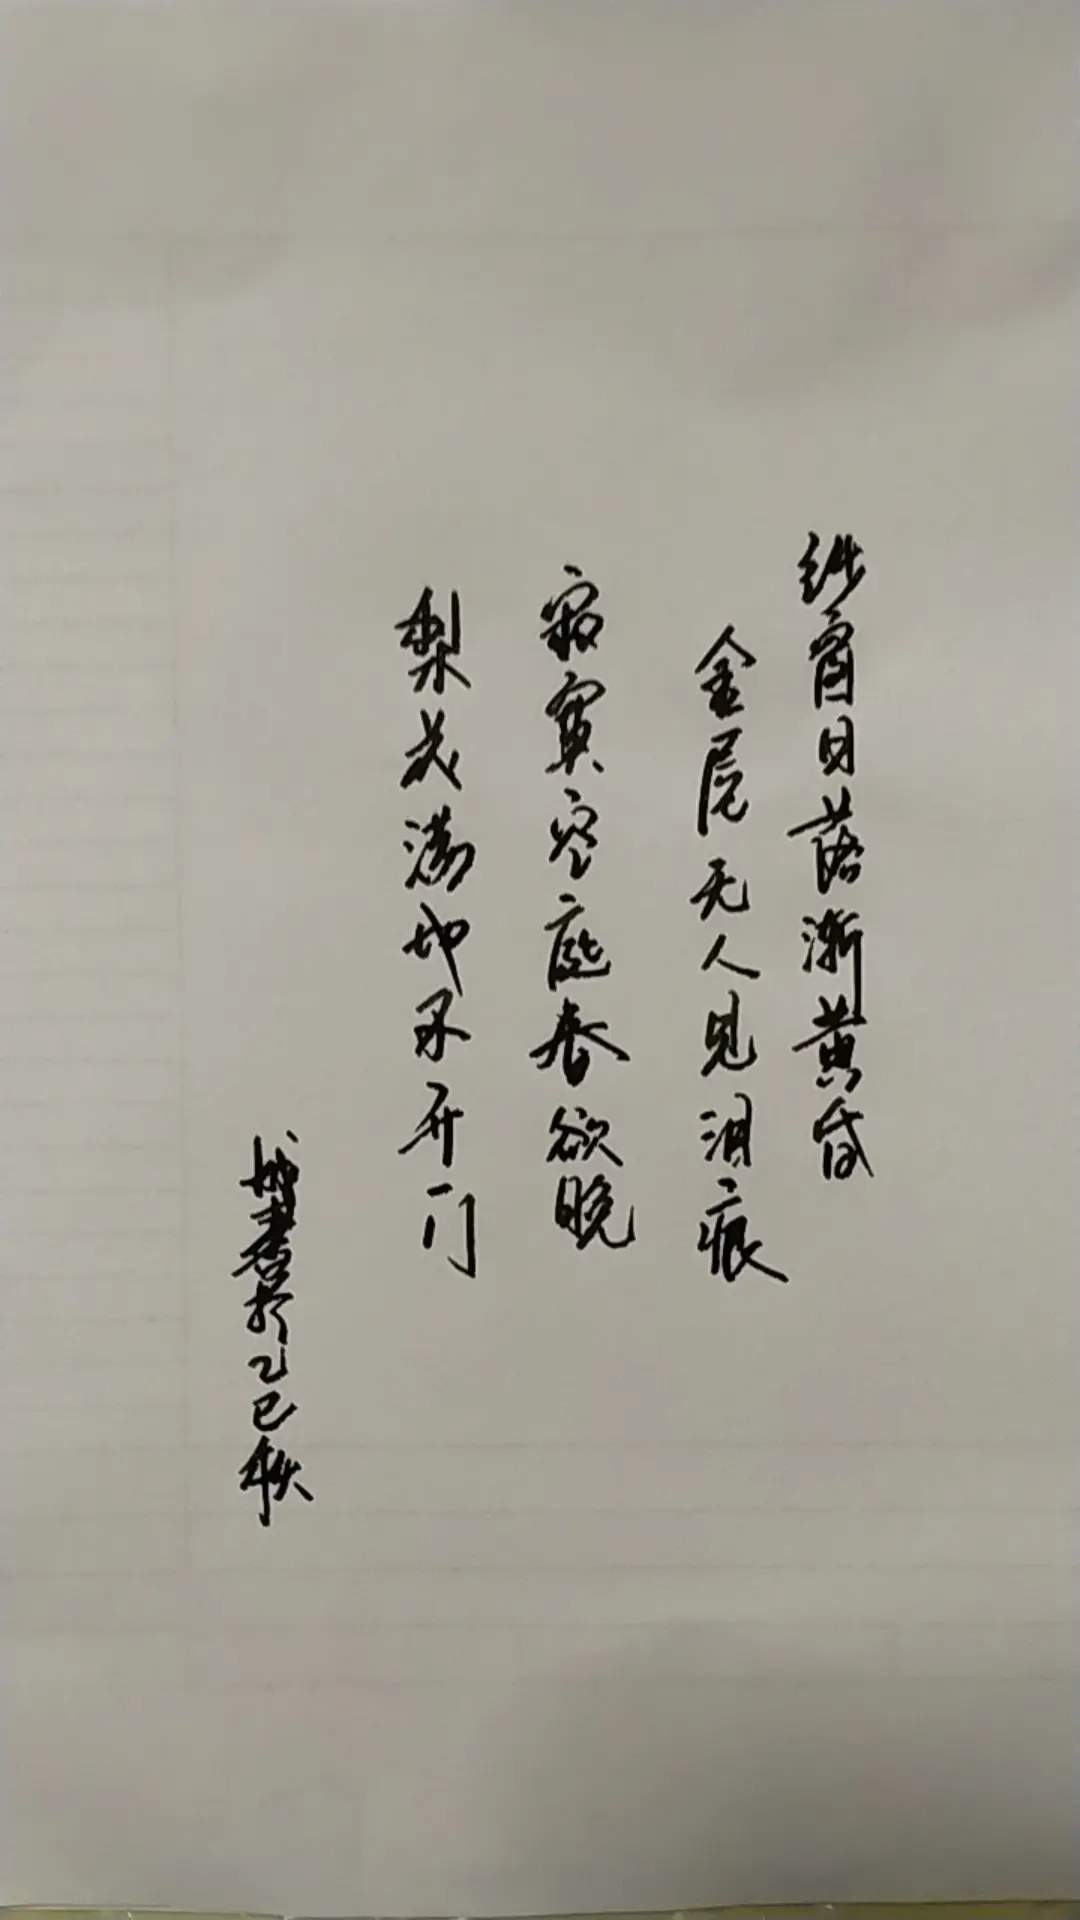 纱窗日落渐黄昏
金屋无人见泪痕
寂寞空庭春欲晚
梨花满地不开门
書於乙巳秋